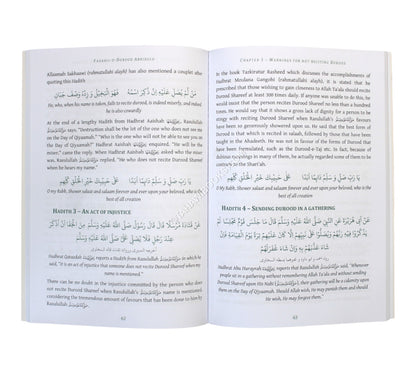 FADHAIL-E-DUROOD ABRIDGED
Allaamah Sakhaawi (rahmatullahi alayh) has also mentioned a couplet after
quoting this Hadith
مَنْ لَّمْ يُصَلِّ عَلَيْهِ إِنْ ذُكِرَ اسْمُهُ فَهُوَ الْبَخِيْلُ وَ زِدْهُ وَصْفَ جَبَانٍ
He, who, when his name is taken, fails to recite durood, is indeed miserly, and indeed,
he is cowardly.
At the end of a lengthy Hadith from Hadhrat Aaishah,
Rasulullah says, "Destruction shall be the lot of the one who does not see me
on the Day of Qiyaamah." "Who is the one who will not be able to see you on
the Day of Qiyaamah?" Hadhrat Aaishah enquired. "He will be the
miser," came the reply. When Hadhrat Aaishah asked who the miser
was, Rasulullah replied, "He who does not recite Durood Shareef when
he hears my name."
يَا رَبِّ صَلِّ وَ سَلِّمْ دَائِمًا أَبَدًا عَلَى حَبِيْبِكَ خَيْرِ الْخَلْقِ كُلِّهِمِ
O my Rabb, Shower salaat and salaam forever and ever upon your beloved, who is the
best of all creation
HADITH 3 – AN ACT OF INJUSTICE
عَنْ قَتَادَةَ مُرْسَلًا قَالَ قَالَ رَسُوْلُ اللهِ صَلَّى اللهُ عَلَيْهِ وَسَلَّمَ مِنَ الْجَفَاءِ أَنْ أُذْكَرَ
عِنْدَ رَجُلٍ فَلَا يُصَلِّيْ عَلَيَّ صَلَّى اللهُ عَلَيْهِ وَسَلَّمَ
Hadhrat Qataadah reports a Hadith from Rasulullah in which he
said, "It is an act of injustice that someone does not recite Durood Shareef when I am
mentioned in his presence."
There can be no doubt in the injustice committed by the person who does
not recite Durood Shareef when Rasulullah's name is mentioned
considering the tremendous amount of favours that has been done to him by
Rasulullah.
62
CHAPTER 3 – WARNINGS FOR NOT RECITING DUROOD
In the book Tazkiratur Rasheed which discusses the accomplishments of
Hadhrat Moulana Gangohi (rahmatullahi alayh), it is mentioned that he
prescribed that those wishing to gain closeness to Allah Ta'ala should recite
Durood Shareef at least 300 times daily. If anyone was unable to do this, he
would insist that the person recites Durood Shareef no less than one hundred
times. He would say that it shows a gross lack of gratitude for a person to be
stingy with reciting Durood Shareef when Rasulullah's favours
have been so generously showered upon us. He said that the best form of
Durood is that which is recited in salaah, followed by those that have been
taught in the Ahadeeth. He was not in favour of the forms of durood that
have been formulated, such as the Durood-e-Taj etc. In fact, because of
dubious meanings in many of them, he actually regarded some of them to be
contrary to the Shari'ah.
يَا رَبِّ صَلِّ وَ سَلِّمْ دَائِمًا أَبَدًا عَلَى حَبِيْبِكَ خَيْرِ الْخَلْقِ كُلِّهِمِ
O my Rabb, Shower salaat and salaam forever and ever upon your beloved, who is the
best of all creation
HADITH 4 – SENDING DUROOD IN A GATHERING
عَنْ أَبِيْ هُرَيْرَةَ عَنِ النَّبِيِّ صَلَّى اللهُ عَلَيْهِ وَسَلَّمَ قَالَ مَا جَلَسَ قَوْمٌ مَجْلِسًا لَمْ
يَذْكُرُوا اللهَ فِيْهِ وَلَمْ يُصَلُّوْا عَلَى نَبِيِّهِمْ إِلَّا كَانَ عَلَيْهِمْ تِرَةً يَوْمَ الْقِيَامَةِ فَإِنْ
شَاءَ عَذَّبَهُمْ وَإِنْ شَاءَ غَفَرَ لَهُمْ
Hadhrat Abu Hurayrah reports a Hadith from Rasulullah, "If people
get up from a gathering without remembering Allah Ta'ala and without sending
Durood Shareef upon His Nabi, their gathering will be a calamity
upon them on the Day of Qiyaamah. Should Allah wish, He may punish them and should
He wish, He may forgive them."
63